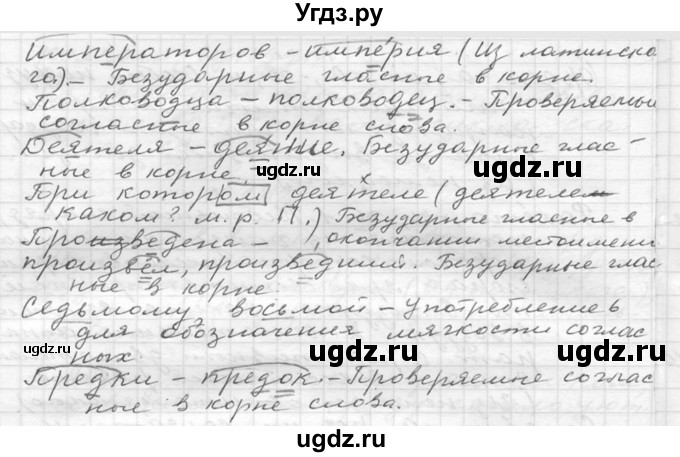 Угдз.ру
Императоров – империя (Из латинско
го) – Безударные гласные в корне.
Полководца – полководец. – Проверяемые
согласные в корне слова.
Деятеля – деяние. Безударные глас-
ные в корне.
ugdz.ru ugdz.ru
При котором деятеле (деятеле –
каком? м.р. П.) Безударные гласные в
Произведена – , окончании местоимени
ugdz.ru
произвёл, произведший. Безударные глас
ные в корне.
ugdz.ru
Седьмому, восьмой – Употребление ь
для обозначения мягкости соглас
ugdz.ru ugdz.ru
ных.
Предки – предок. – Проверяемые соглас
ные в корне слова.
ugdz.ru
ugdz.ru